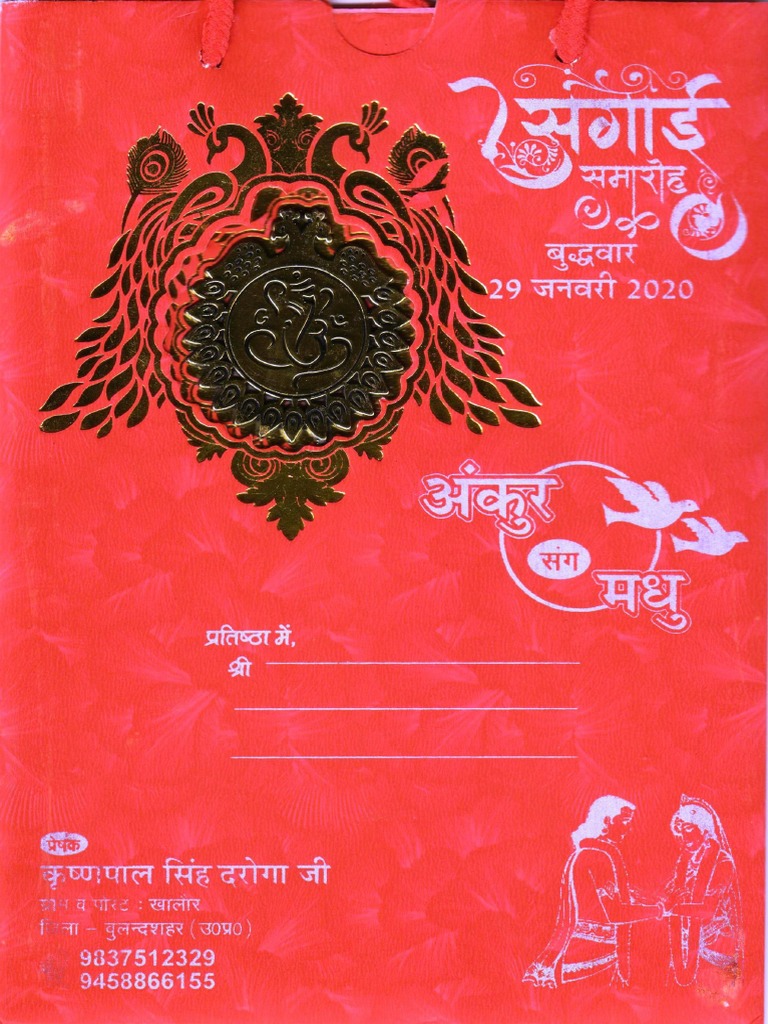 सगाई
समारोह
बुद्धवार
29 जनवरी 2020
अंकुर
संग
मधु
प्रतिष्ठा में,
श्री
प्रेषक
कृष्णपाल सिंह दरोगा जी
ग्राम व पोस्ट : खालौर
जिला – बुलन्दशहर (उ0प्र0)
9837512329
9458866155